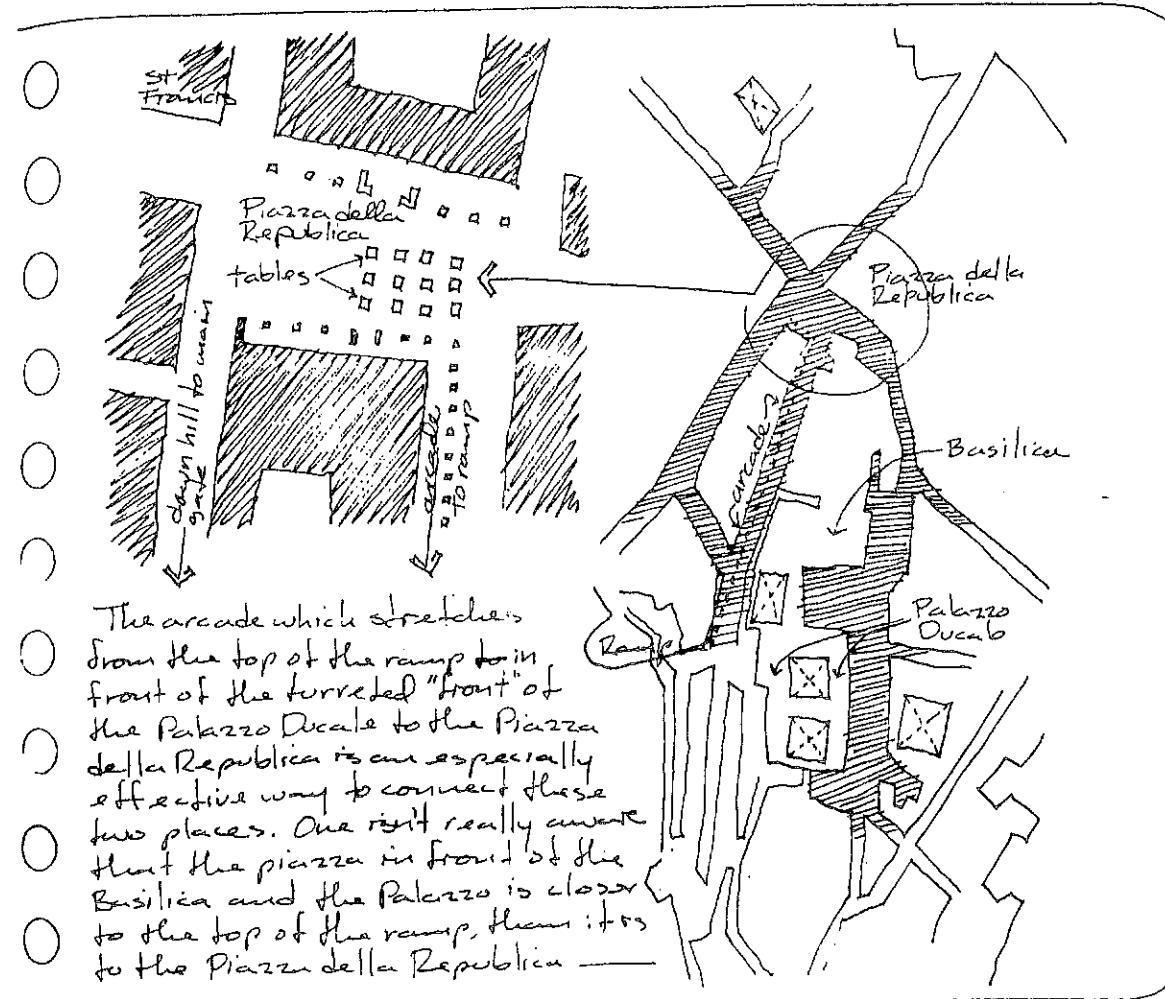 St
Francis
Piazza della
Republica
tables
down hill to main
gate
arcade
to ramp
Piazza della
Republica
arcade
Basilica
Palazzo
Ducale
Ramp
The arcade which stretches
from the top of the ramp to in
front of the turreted "front" of
the Palazzo Ducale to the Piazza
della Republica is an especially
effective way to connect these
two places. One isn't really aware
that the piazza in front of the
Basilica and the Palazzo is closer
to the top of the ramp, than it is
to the Piazza della Republica —